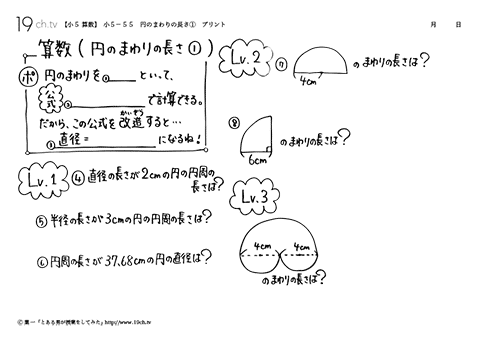 19ch.tv 【小5 算数】 小5-55 円のまわりの長さ① プリント 月 日
算数(円のまわりの長さ①)
ポ 円のまわりを① といって、
公式② で計算できる。
かいぞう
だから、この公式を改造すると…
③直径= になるね!
Lv.1 ④直径の長さが2cmの円の円周の
長さは?
⑤半径の長さが3cmの円の円周の長さは?
⑥円周の長さが37.68cmの円の直径は?
Lv.2 ⑦ のまわりの長さは?
4cm
⑧ のまわりの長さは?
6cm
Lv.3
4cm 4cm
のまわりの長さは?
Ⓒ葉一「とある男が授業をしてみた」http://www.19ch.tv